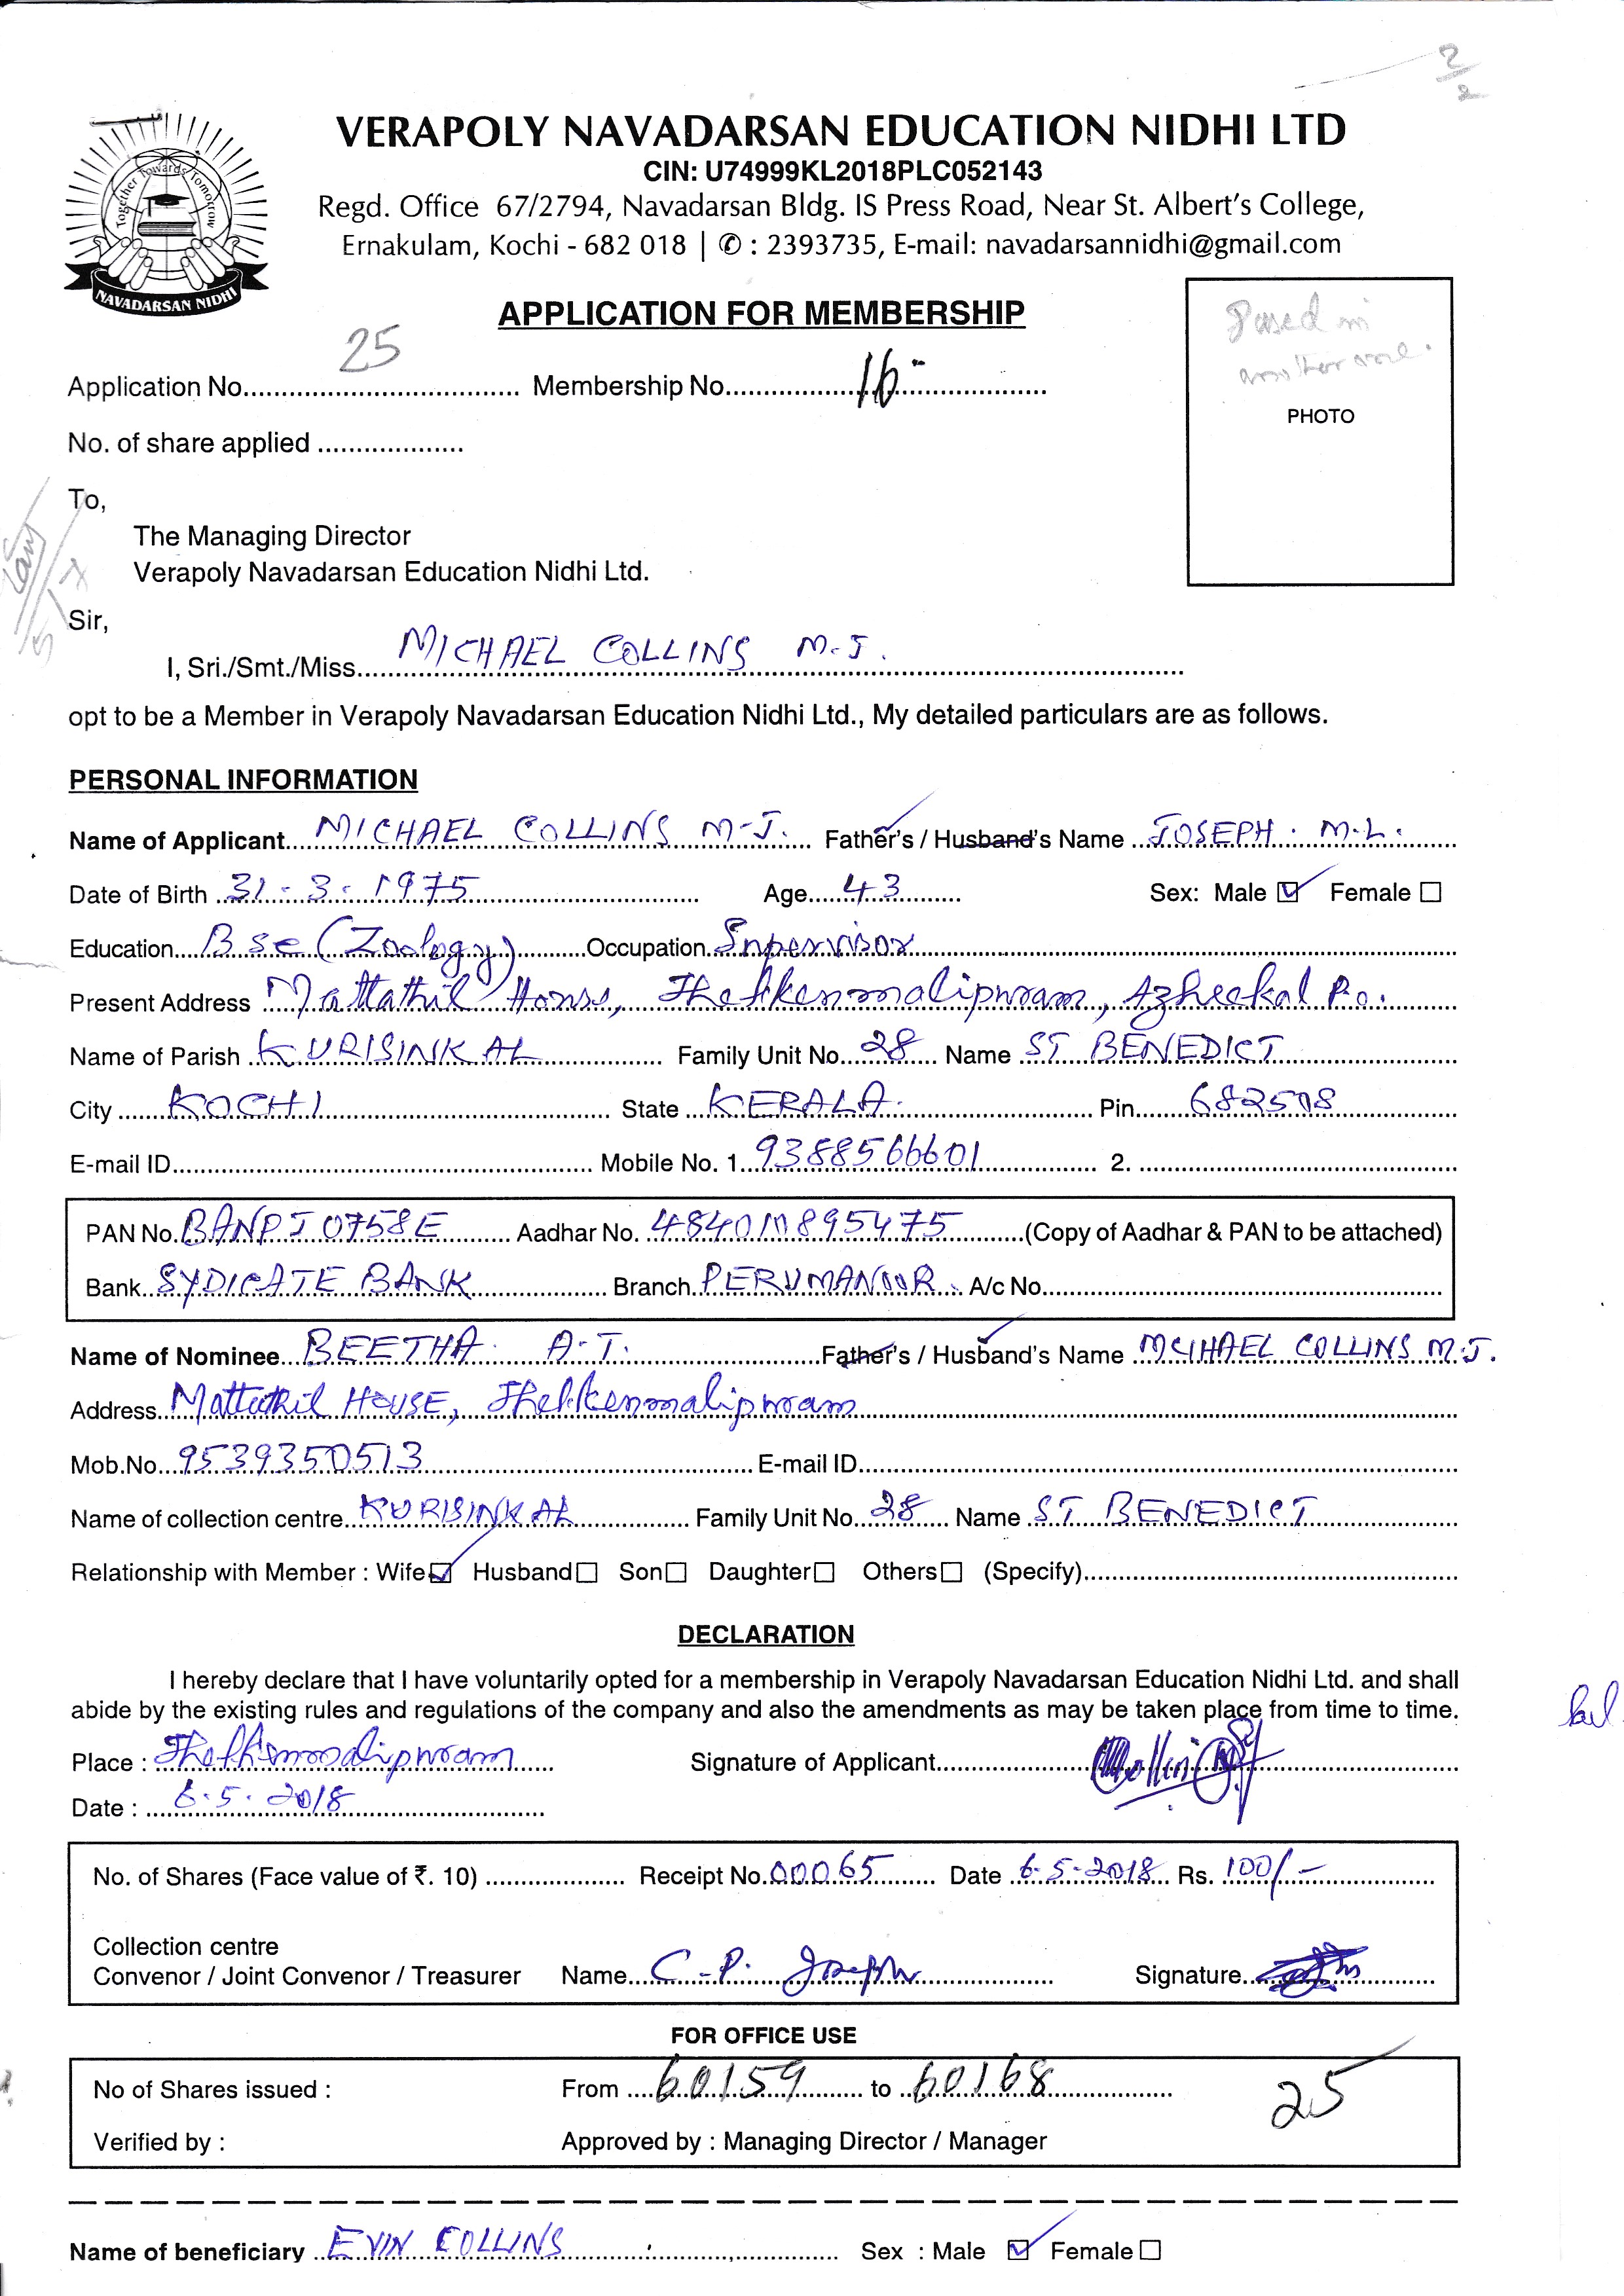 2/2
VERAPOLY NAVADARSAN EDUCATION NIDHI LTD
CIN: U74999KL2018PLC052143
Regd. Office 67/2794, Navadarsan Bldg. IS Press Road, Near St. Albert's College,
Ernakulam, Kochi - 682 018 | ✆ : 2393735, E-mail: navadarsannidhi@gmail.com
Together Towards Tomorrow
NAVADARSAN NIDHI
APPLICATION FOR MEMBERSHIP
Application No. 25 Membership No. 16
in
PHOTO
No. of share applied
To,
The Managing Director
Verapoly Navadarsan Education Nidhi Ltd.
Sir,
I, Sri./Smt./Miss. MICHAEL COLLINS M.J.
opt to be a Member in Verapoly Navadarsan Education Nidhi Ltd., My detailed particulars are as follows.
PERSONAL INFORMATION
Name of Applicant. MICHAEL COLLINS M-J. Father's / Husband's Name JOSEPH. M.L.
Date of Birth 31-3-1975 Age 43 Sex: Male ☑ Female ☐
Education B.sc (Zoology) Occupation Supervisor
Present Address Mattathil House, Thekkenmalipuram, Azheekal P.o.
Name of Parish KURISINKAL Family Unit No. 28 Name ST BENEDICT
City KOCHI State KERALA. Pin 682508
E-mail ID Mobile No. 1. 9388566601 2.
PAN No. BANPJ0758E Aadhar No. 484010895475 (Copy of Aadhar & PAN to be attached)
Bank SYDICATE BANK Branch PERUMANOOR. A/c No.
Name of Nominee BEETHA. A-T. Father's / Husband's Name MCIHAEL COLLINS M.J.
Address Mattathil HOUSE, Thekkenmalipuram
Mob.No. 9539350513 E-mail ID
Name of collection centre KURISINKAL Family Unit No. 28 Name ST BENEDICT
Relationship with Member : Wife ☑ Husband ☐ Son ☐ Daughter ☐ Others ☐ (Specify)
DECLARATION
I hereby declare that I have voluntarily opted for a membership in Verapoly Navadarsan Education Nidhi Ltd. and shall
abide by the existing rules and regulations of the company and also the amendments as may be taken place from time to time.
Place : Thekkenmalipuram Signature of Applicant
Date : 6.5.2018
No. of Shares (Face value of ₹. 10) Receipt No. 00065 Date 6-5-2018 Rs. 100/-
Collection centre
Convenor / Joint Convenor / Treasurer Name C-P. Joseph Signature
FOR OFFICE USE
No of Shares issued : From 60159 to 60168 25
Verified by : Approved by : Managing Director / Manager
Name of beneficiary EVIN COLLINS Sex : Male ☑ Female ☐